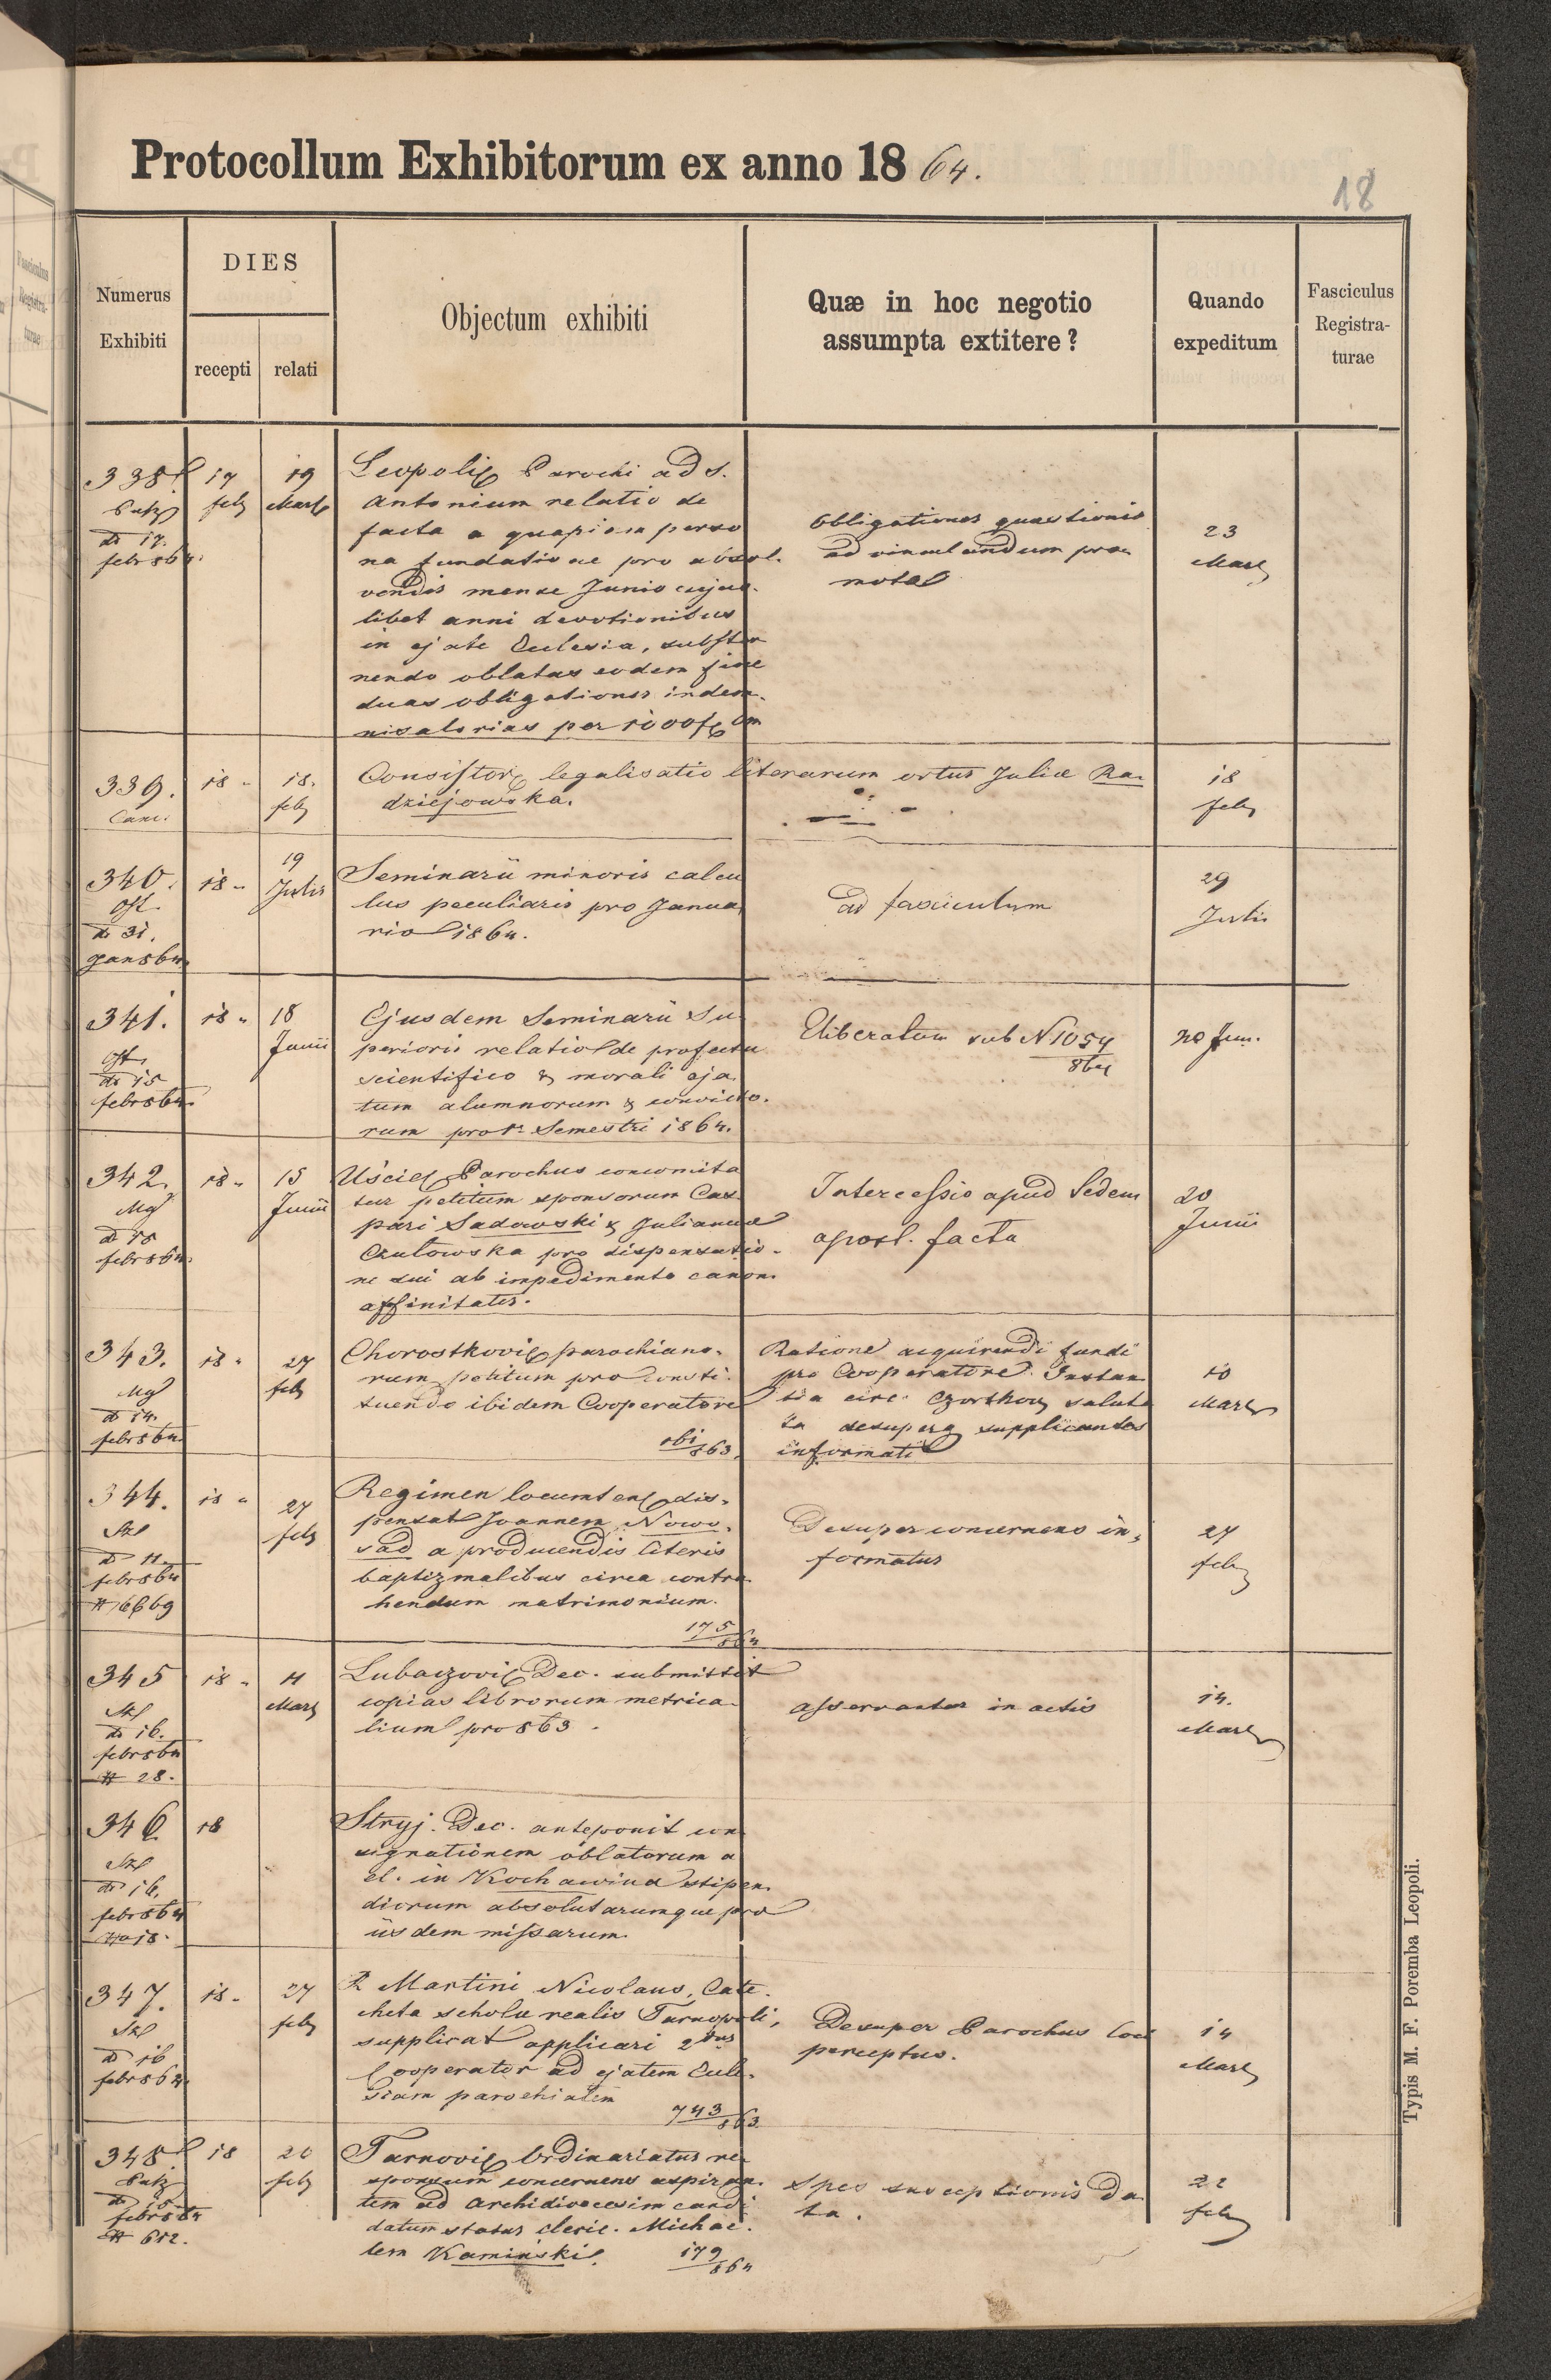 Protocollum Exhibitorum ex anno 18 64.
18
Numerus Exhibiti
DIES
recepti
relati
Objectum exhibiti
Quæ in hoc negotio assumpta extitere?
Quando expeditum
Fasciculus Registra-turae
338
17 feb
19 Mart
de 17.
febr 864.
Leopoli Parochi ad S.
Antonium relatio de
facta a quapiam perso
na fundatione pro absol.
vendis mense Junio cujus-
libet anni devotionibus
in ejate Ecclesia, subster
nendo oblatas eodem fine
duas obligationes indem.
nisatorias per 1000 f
Obligationes quaestionis
ad vinculandum pro
notae
23
Mart
339.
Canc.
18 -
18.
feb
Consistor legalisatio literarum ortus Juliæ Ra-
dziejowska.
18
feb
340.
Ost
de 31.
Jan 864
18 -
19
Julii
Seminarii minoris calcu
lus peculiaris pro Janua
rio 1864.
ad fasciculum
29
Julii
341.
Ost
de 15
febr 864
18 -
18
Junii
Ejusdem Seminarii Su-
perioris relatio de profectu
scientifico & morali eja
tum alumnorum & convicto.
rum pro 1. Semestri 1864.
Eliberatum sub N 1054
864
20 Jun.
342.
Mg
de 15
febr 864
18 -
15
Junii
Uście Parochus concomita
tur petitum sponsorum Cas
pari Sadowski & Julianna
Czutowska pro dispensatio-
ne sui ab impedimento canon.
affinitatis.
Intercessio apud Sedem
apost. facta
20
Junii
343.
Mg
de 14.
febr 864
18 -
27
feb
Chorostkovi parochiano-
rum petitum pro consti-
tuendo ibidem Cooperatore
863
Ratione acquirendi fundi
pro Cooperatore. Instan
tia circ. Czortkov
desuper supplicantes
informati
10
Mart
344.
de 11
febr 864
# 6669
18 -
27
feb
Regimen locumten dis-
pensat Joannem Nowo-
sad a producendis literis
baptizmalibus circa contra
hendum matrimonium.
175
864
Desuper concernens in-
formatus
27
feb
345
de 16.
febr 864
# 28.
18 -
11
Mart
Lubaczovi Dec. submittit
copias librorum metrica-
lium pro 863.
asservantur in actis
14.
Mart
346
de 16.
febr 864
18
Stryj. Dec. anteponit con
signationem oblatorum a
el. in Kochawina stipen
diorum absolutarumque pro
iisdem missarum.
347.
de 16
febr 864
18 -
27
feb
R Martini Nicolaus, Cate-
cheta schola realis Tarnopoli,
supplicat applicari 2dus
Cooperator ad ejatem Eccle-
siam parochialem
743
863
Desuper Parochus loci
perceptus.
14
Mart
348.
de 15
febr 864
# 612.
18
20
feb
Tarnovi Ordinariatus re-
sponsum concernens aspiran.
tem ad Archidioecesim candi
datum status cleric. Michae-
lem Kamiński.
179
864
Spes susceptionis da
ta.
22
feb
Typis M. F. Poremba Leopoli.